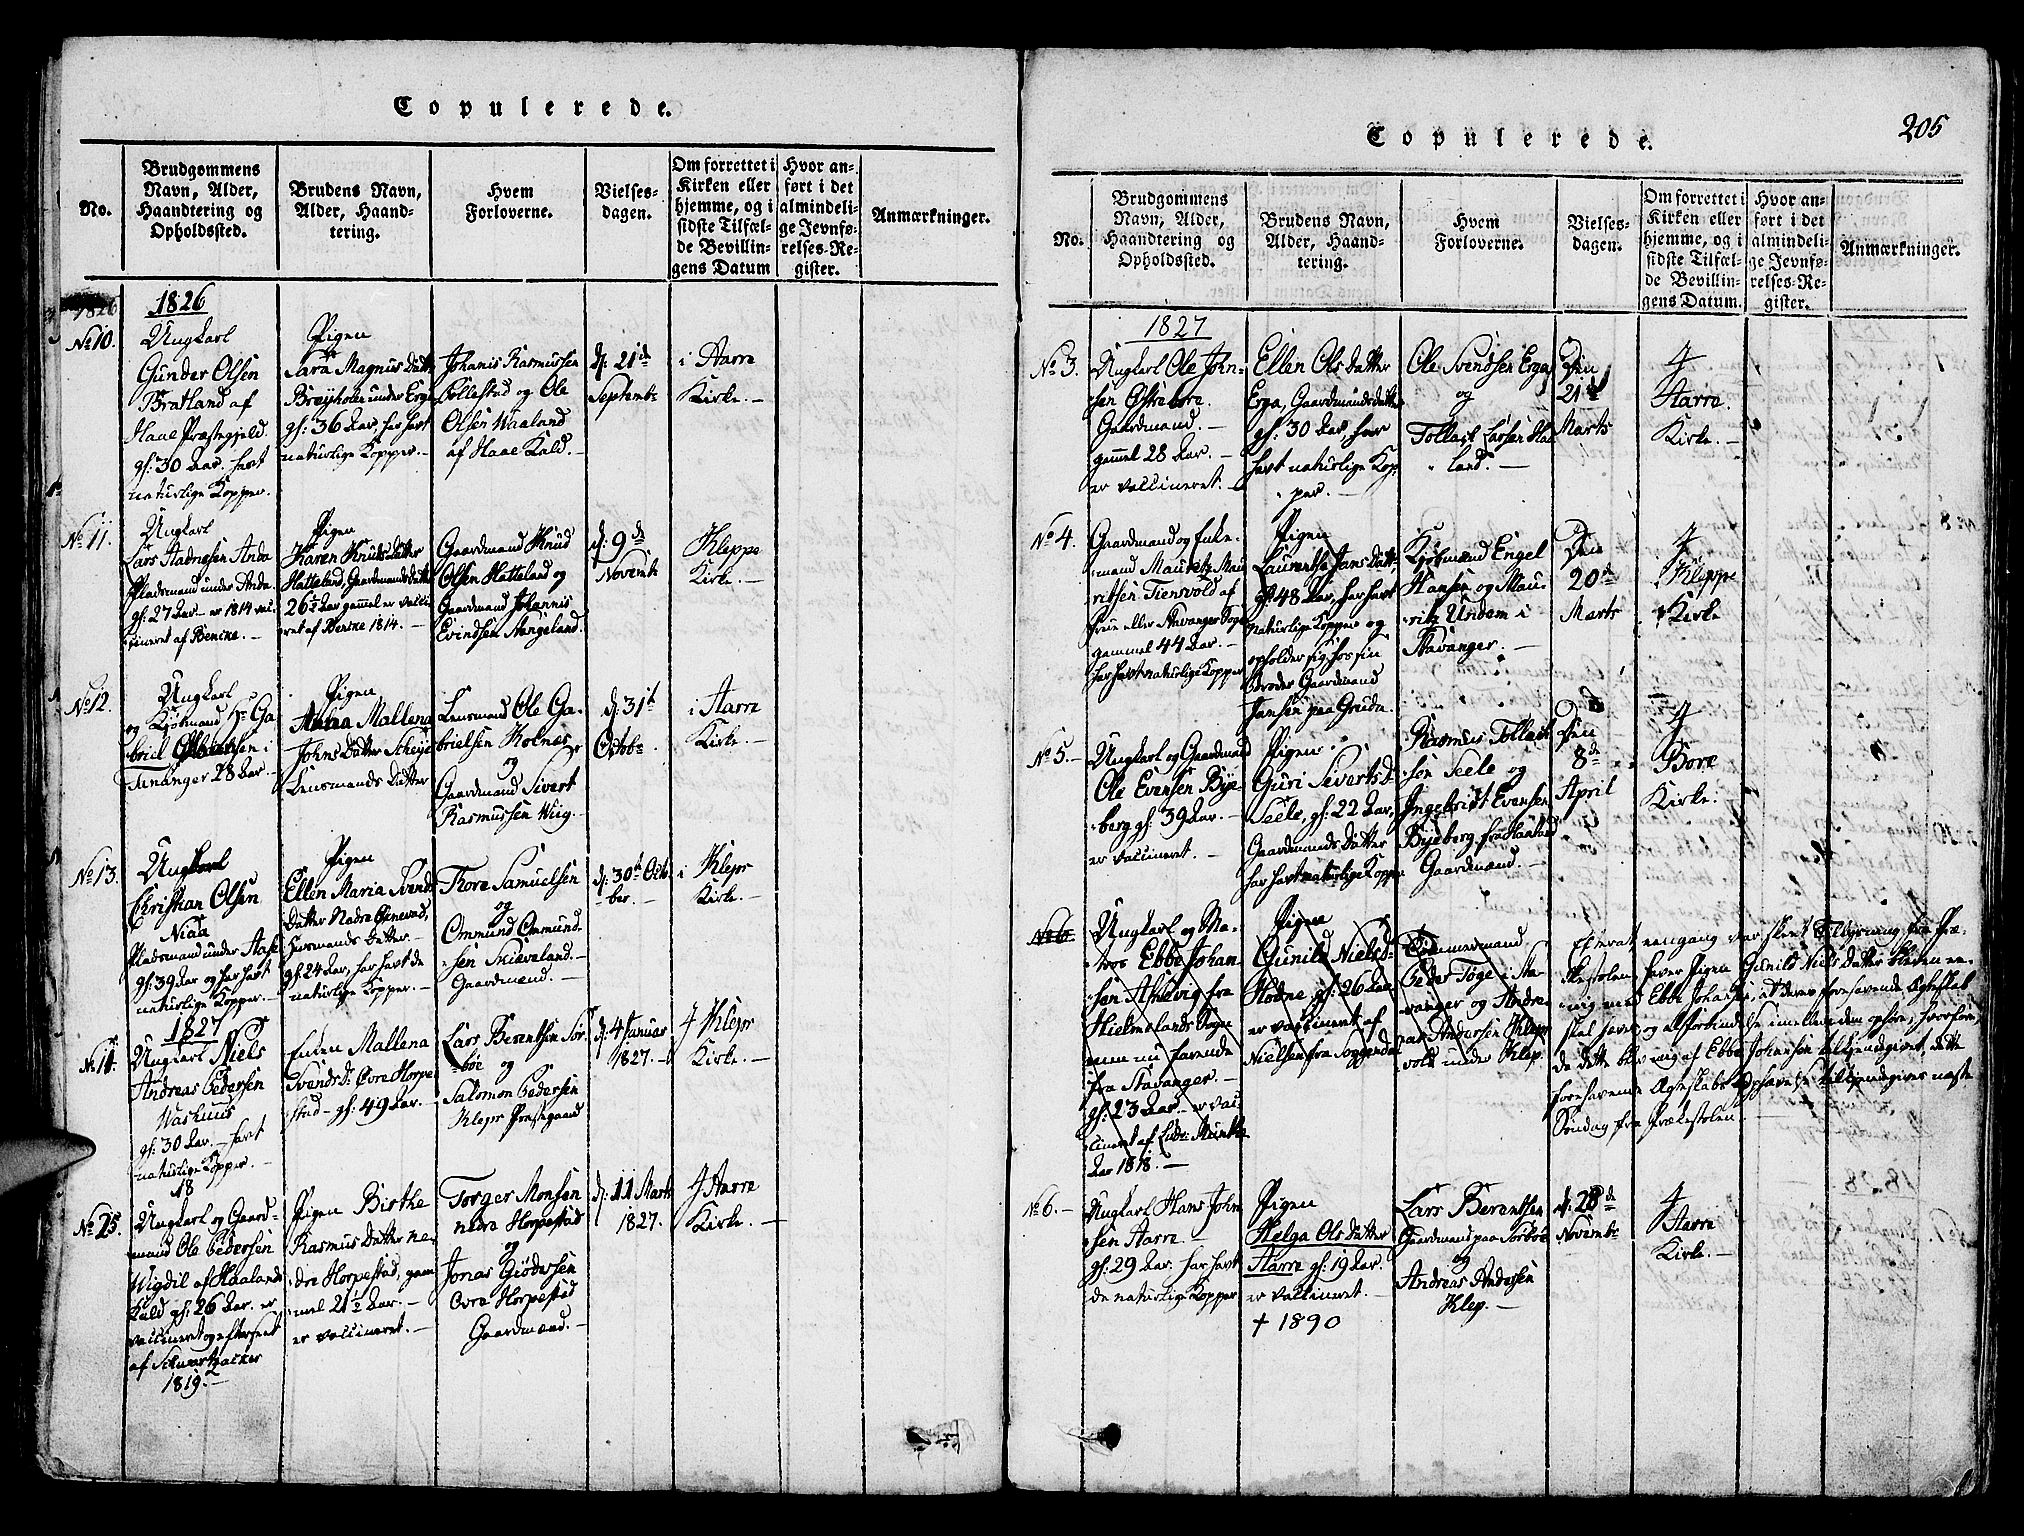 Copulerede.
No.
Brudgommens
Navn, Alder,
Haandtering og
Opholdssted.
Brudens Navn,
Alder, Haand-
tering.
Hvem
Forloverne.
Vielses-
dagen.
Om forrettet i
Kirken eller
hjemme, og i
sidste Tilfæl-
de Bevillin-
gens Datum
Hvor an-
ført i det
almindeli-
ge Jevnfø-
relses-Re-
gister.
Anmærkninger.
1826
1826
No 10.
Ungkarl
Gunder Olsen
Bratland af
Haae Præstegjeld.
gl: 30 Aar. havt
naturlige Kopper.
Pigen
Sara Magnus Datt
under Erga
gl: 36 Aar, har havt
naturlige Kopper.
Johanis Rasmussen
Bollestad og Ole
Olsen Waaland
af Haae Kald.
d: 21de
Septembr
i Aarre
Kirke.
No 11.
Ungkarl
Lars Aadnesen Anda
Pladsmand under Anda
gl: 27 Aar er 1814 vac-
cineret af Bencke.
Pigen
Karen Knuds Datter
Hatteland, Gaardmands datter
26½ Aar gammel er vacci
neret af Bencke 1814.
Gaardmand Knud
Olsen Hatteland og
Gaardmand Johannis
Evindsen Angeland.
d: 9de
Novembr
Kleppe
Kirke.
No 12.
Ungkarl
og Kjøbmand Hr Ga
briel
Tananger 28 Aar.
Pigen
Mallena
Johns Datter
Lensmands Datter
Lensmand Ole Ga-
brielsen Kolnæs
og
Gaardmand Sivert
Rasmussen Wiig.
d: 31t
Octobr.
i Aarre
Kirke.
No 13.
Ungkarl
Christian Olsen
Niaa
Pladsmand under
gl: 39 Aar og har havt
naturlige Kopper.
Pigen
Ellen Maria Svends
Datter Nedre
Huusmands Datter
gl: 24 Aar, har havt de
naturlige Kopper.
Thore Samuelsen
og
Ommund Ommund
sen Skieveland.
Gaardmænd.
d: 30t Octo
ber.
i Klepr
Kirke.
1827
No 1.
Ungkarl Niels
Andreas Pedersen
Waskuus
gl: 30 Aar. havt
naturlige Kopper.
Enken Mallena
Svends Dr Øvre Horpe
stad gl: 49 Aar.
Lars Berentsen Sør
bøe og
Salomon Pedersen
Klepr Præstegaard
d: 4 Januar
1827.
I Klepr
Kirke.
No 2.
Ungkarl og Gaard-
mand Ole Pedersen
Wigdil af Haalands
Kald gl: 26 Aar. er
vaccineret og efterseet
af Schwartzacker
1819.
Pigen Birthe
Rasmus Datter ne-
dre Horpestad, gam
mel 21½ Aar.
er vaccineret.
Torger Monsen
nedre Horpestad
og
Jonas Giødesen
Øvre Horpestad
Gaardmænd.
d: 11 Marts
1827.
I Aarre
Kirke.
205
Copulerede.
No.
Brudgommens
Navn, Alder,
Haandtering og
Opholdssted.
Brudens Navn,
Alder, Haand-
tering.
Hvem
Forloverne.
Vielses-
dagen.
Om forrettet i
Kirken eller
hjemme, og i
sidste Tilfæl-
de Bevillin-
gens Datum.
Hvor an-
ført i det
almindeli-
ge Jevnfø-
relses-Re-
gister.
Anmærkninger.
1827
No 3.
Ungkarl Ole John-
sen Østrebøre.
Gaardmand.
gammel 28 Aar.
er vaccineret.
Ellen Ols datter
Erga, Gaardmands datter
gl: 30 Aar, har
havt naturlige Kop
per.
Ole Svendsen Erga
og
Tollach Larsen Hau
land.
Den
21de
Marts
I
Aarre.
Kirke.
No 4.
Gaardmand og Enke-
mand Mauritz Mau
ritsen Tiensvold af
eller Stavanger Sogn
gammel 44 Aar.
har havt naturlige Kopper
Pigen
Laurentha Jans Datt-
gl: 48 Aar, har havt
naturlige Kopper og
opholder sig hos sin
Broder Gaardmand
Jansen paa Gruda.
Kjøbmænd Engel
Hansen og Mau-
ritz Undem i
Stavanger.
Den
20de
Marts
I
Kleppe
Kirke
No 5.
Ungkarl og Gaardmand
Ole Evensen Bye-
berg gl: 39 Aar.
er vaccineret.
Pigen
Guri Siverts d
Seele, gl: 22 Aar,
Gaardmands Datter
har havt naturlige Kopper
Rasmus Tollach
sen Seele og
Ingebrigt Evensen
Byeberg, fra Haaland
Gaardmænd.
Den
8de
April
I
Bore
Kirke.
No 6.
Ungkarl og Ma-
tros Ebbe Johan
sen Ahlevig fra
Hielmelands Sogn
men nu farende
fra Stavanger.
gl: 23 Aar er vac-
cineret af Munthe
Aar 1818.
Pigen
Gunild Niels D
Hodne gl: 26 Aar
er vaccineret af
Nielsen fra Soggendal
Tømmermand
Peder Tøge i Sta
vanger og Andre
as Andersen Klepp
vold under Klep.
Efterat eengang var skeet Tillysning fra Præ-
kestolen, haver Pigen Gunild Niels Datter
mig med Ebbe Johansen, at deres forehavende Ægteskab
skal have og al Forbindelse imellem dem ophøre; hvorfore,
da dette blev mig af Ebbe Johansen tilkjendegivet, dette
forehavende Ægteskabs Ophævelse tilkjendegives næste
Søndag fra Prækestolen.
No 6.
Ungkarl Hans John
sen Aarre.
gl: 29 Aar. har havt
de naturlige Kopper
Pigen
Helga Ols datter
Aarre gl: 19 Aar.
er vaccineret.
† 1890
Lars Berentsen
Gaardmand paa Sørbøe
og
Andreas Andersen
Klep.
d: 28de
Novembr
I
Aarre
Kirke.